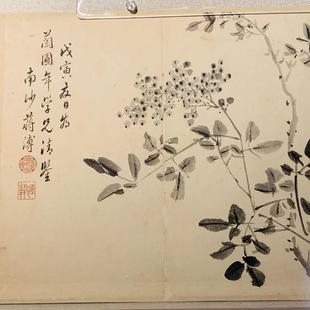 戊寅夏日為
蘭圃年學兄清鑒
南沙蔣溥